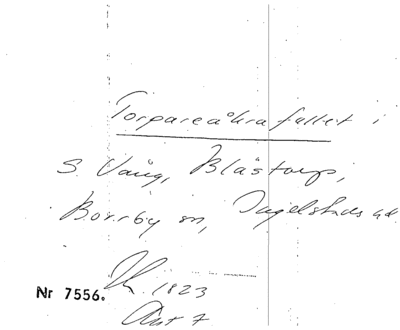 Torpareåkrafallet i
S. Vång, Blåstorp,
Borrby sn, Ingelstads hd.
1823
Nr 7556.
Akt 7